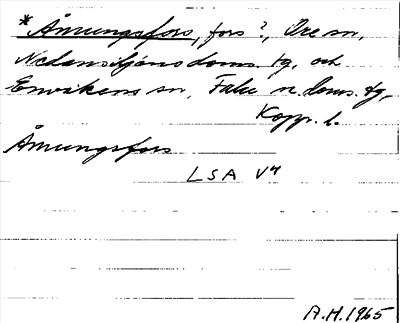 * Åmungsfors, fors ?, Ore sn,
Nedansiljans doms. tg. och
Envikens sn, Falu n. doms. tg,
Kopp. l.
Åmungsfors
LSA V4
A.H. 1965